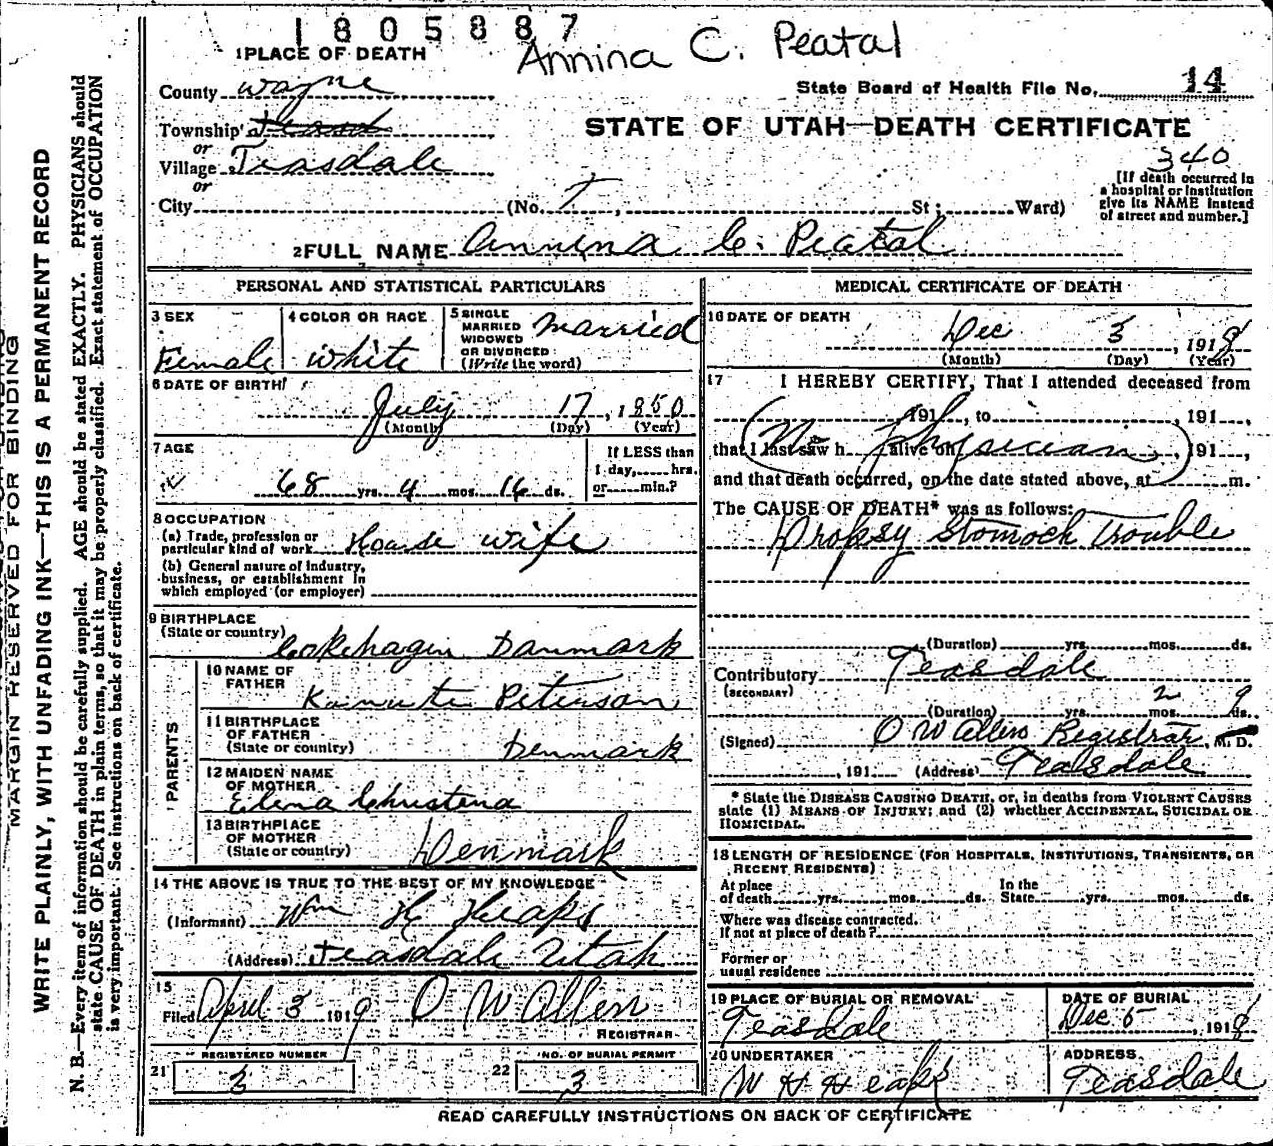 1805887
Annina C. Peatal
1 PLACE OF DEATH
County Wayne
State Board of Health File No. 14
Township Teasd
or
Village Teasdale
or
City (No. T, St; Ward)
STATE OF UTAH—DEATH CERTIFICATE
340
[If death occurred in
a hospital or institution
give its NAME instead
of street and number.]
2 FULL NAME Annina C. Peatal
PERSONAL AND STATISTICAL PARTICULARS
3 SEX
Female
4 COLOR OR RACE
white
5 SINGLE
MARRIED
WIDOWED
OR DIVORCED
(Write the word)
Married
6 DATE OF BIRTH
July 17, 1850
(Month) (Day) (Year)
7 AGE
68 yrs. 4 mos. 16 ds.
If LESS than
1 day, hrs.
or min.?
8 OCCUPATION
(a) Trade, profession or
particular kind of work House wife
(b) General nature of industry,
business, or establishment in
which employed (or employer)
9 BIRTHPLACE
(State or country) Cokehagin Danmark
PARENTS
10 NAME OF
FATHER
Kanute Peterson
11 BIRTHPLACE
OF FATHER
(State or country) Denmark
12 MAIDEN NAME
OF MOTHER
Elena Christena
13 BIRTHPLACE
OF MOTHER
(State or country) Denmark
14 THE ABOVE IS TRUE TO THE BEST OF MY KNOWLEDGE
(Informant) Wm H Heaps
(Address) Teasdale Utah
15
Filed April 3 1919 O W Allen
REGISTRAR
21 REGISTERED NUMBER
3
22 NO. OF BURIAL PERMIT
3
MEDICAL CERTIFICATE OF DEATH
16 DATE OF DEATH
Dec 3, 1918
(Month) (Day) (Year)
17 I HEREBY CERTIFY, That I attended deceased from
191 , to , 191 ,
that I last saw h alive on , 191 ,
(No physician)
and that death occurred, on the date stated above, at m.
The CAUSE OF DEATH* was as follows:
Dropsy Stomoch Trouble
(Duration) yrs. mos. ds.
Contributory Teasdale
(SECONDARY)
(Duration) yrs. 2 mos. 9 ds.
(Signed) O W Allen Registrar, M. D.
, 191 (Address) Teasdale
* State the DISEASE CAUSING DEATH, or, in deaths from VIOLENT CAUSES
state (1) MEANS OF INJURY; and (2) whether ACCIDENTAL, SUICIDAL OR
HOMICIDAL.
18 LENGTH OF RESIDENCE (FOR HOSPITALS, INSTITUTIONS, TRANSIENTS, OR
RECENT RESIDENTS)
At place
of death yrs. mos. ds.
In the
State yrs. mos. ds.
Where was disease contracted.
If not at place of death?
Former or
usual residence
19 PLACE OF BURIAL OR REMOVAL
Teasdale
DATE OF BURIAL
Dec 5, 1918
20 UNDERTAKER
W H Heaps
ADDRESS
Teasdale
READ CAREFULLY INSTRUCTIONS ON BACK OF CERTIFICATE
MARGIN RESERVED FOR BINDING
WRITE PLAINLY, WITH UNFADING INK—THIS IS A PERMANENT RECORD
N. B.—Every item of information should be carefully supplied. AGE should be stated EXACTLY. PHYSICIANS should
state CAUSE OF DEATH in plain terms, so that it may be properly classified. Exact statement of OCCUPATION
is very important. See instructions on back of certificate.